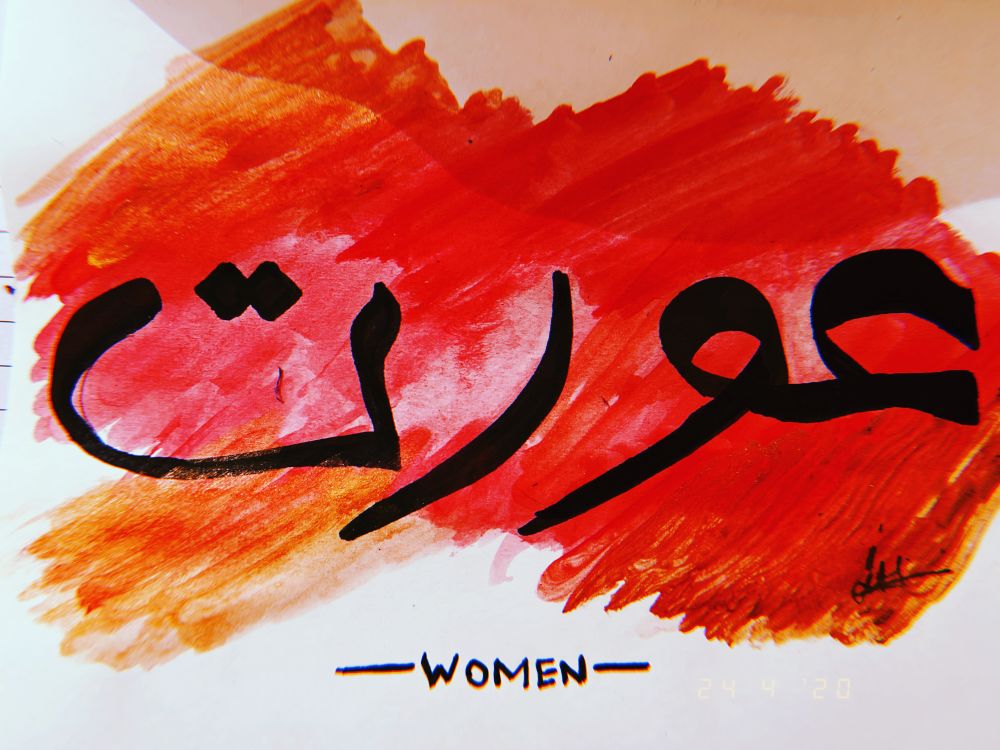 عورت
—WOMEN—
24 4 '20